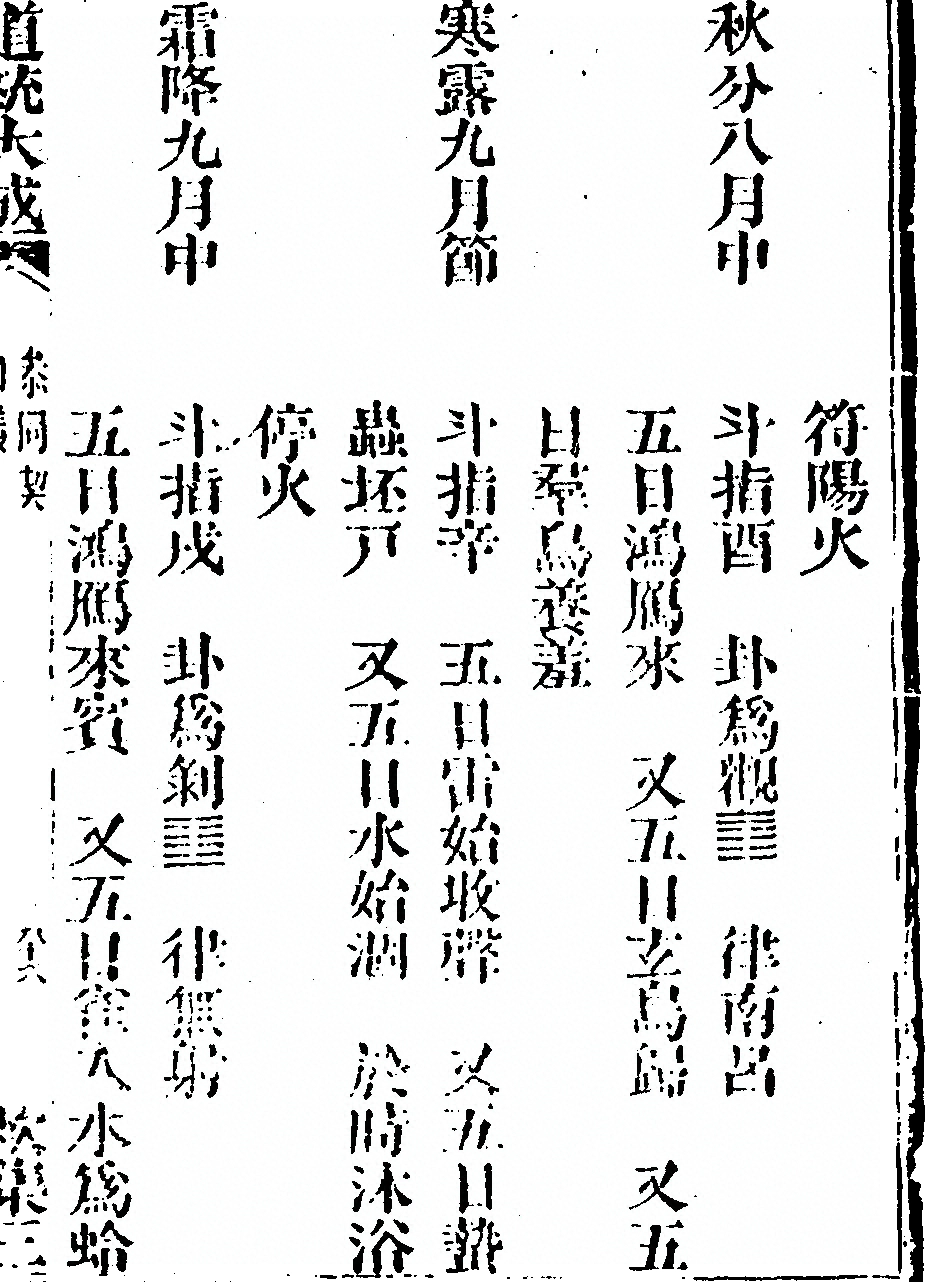 符陽火
秋分八月中 斗指酉 卦爲觀䷓ 律南呂
五日鴻鴈來 又五日玄鳥歸 又五
日羣鳥養羞
寒露九月節 斗指辛 五日雷始收聲 又五日蟄
蟲坯戸 又五日水始涸 於時沐浴
停火
霜降九月中 斗指戌 卦爲剝䷖ 律無射
五日鴻鴈來賓 又五日雀入水爲蛤
道統大成
參同契